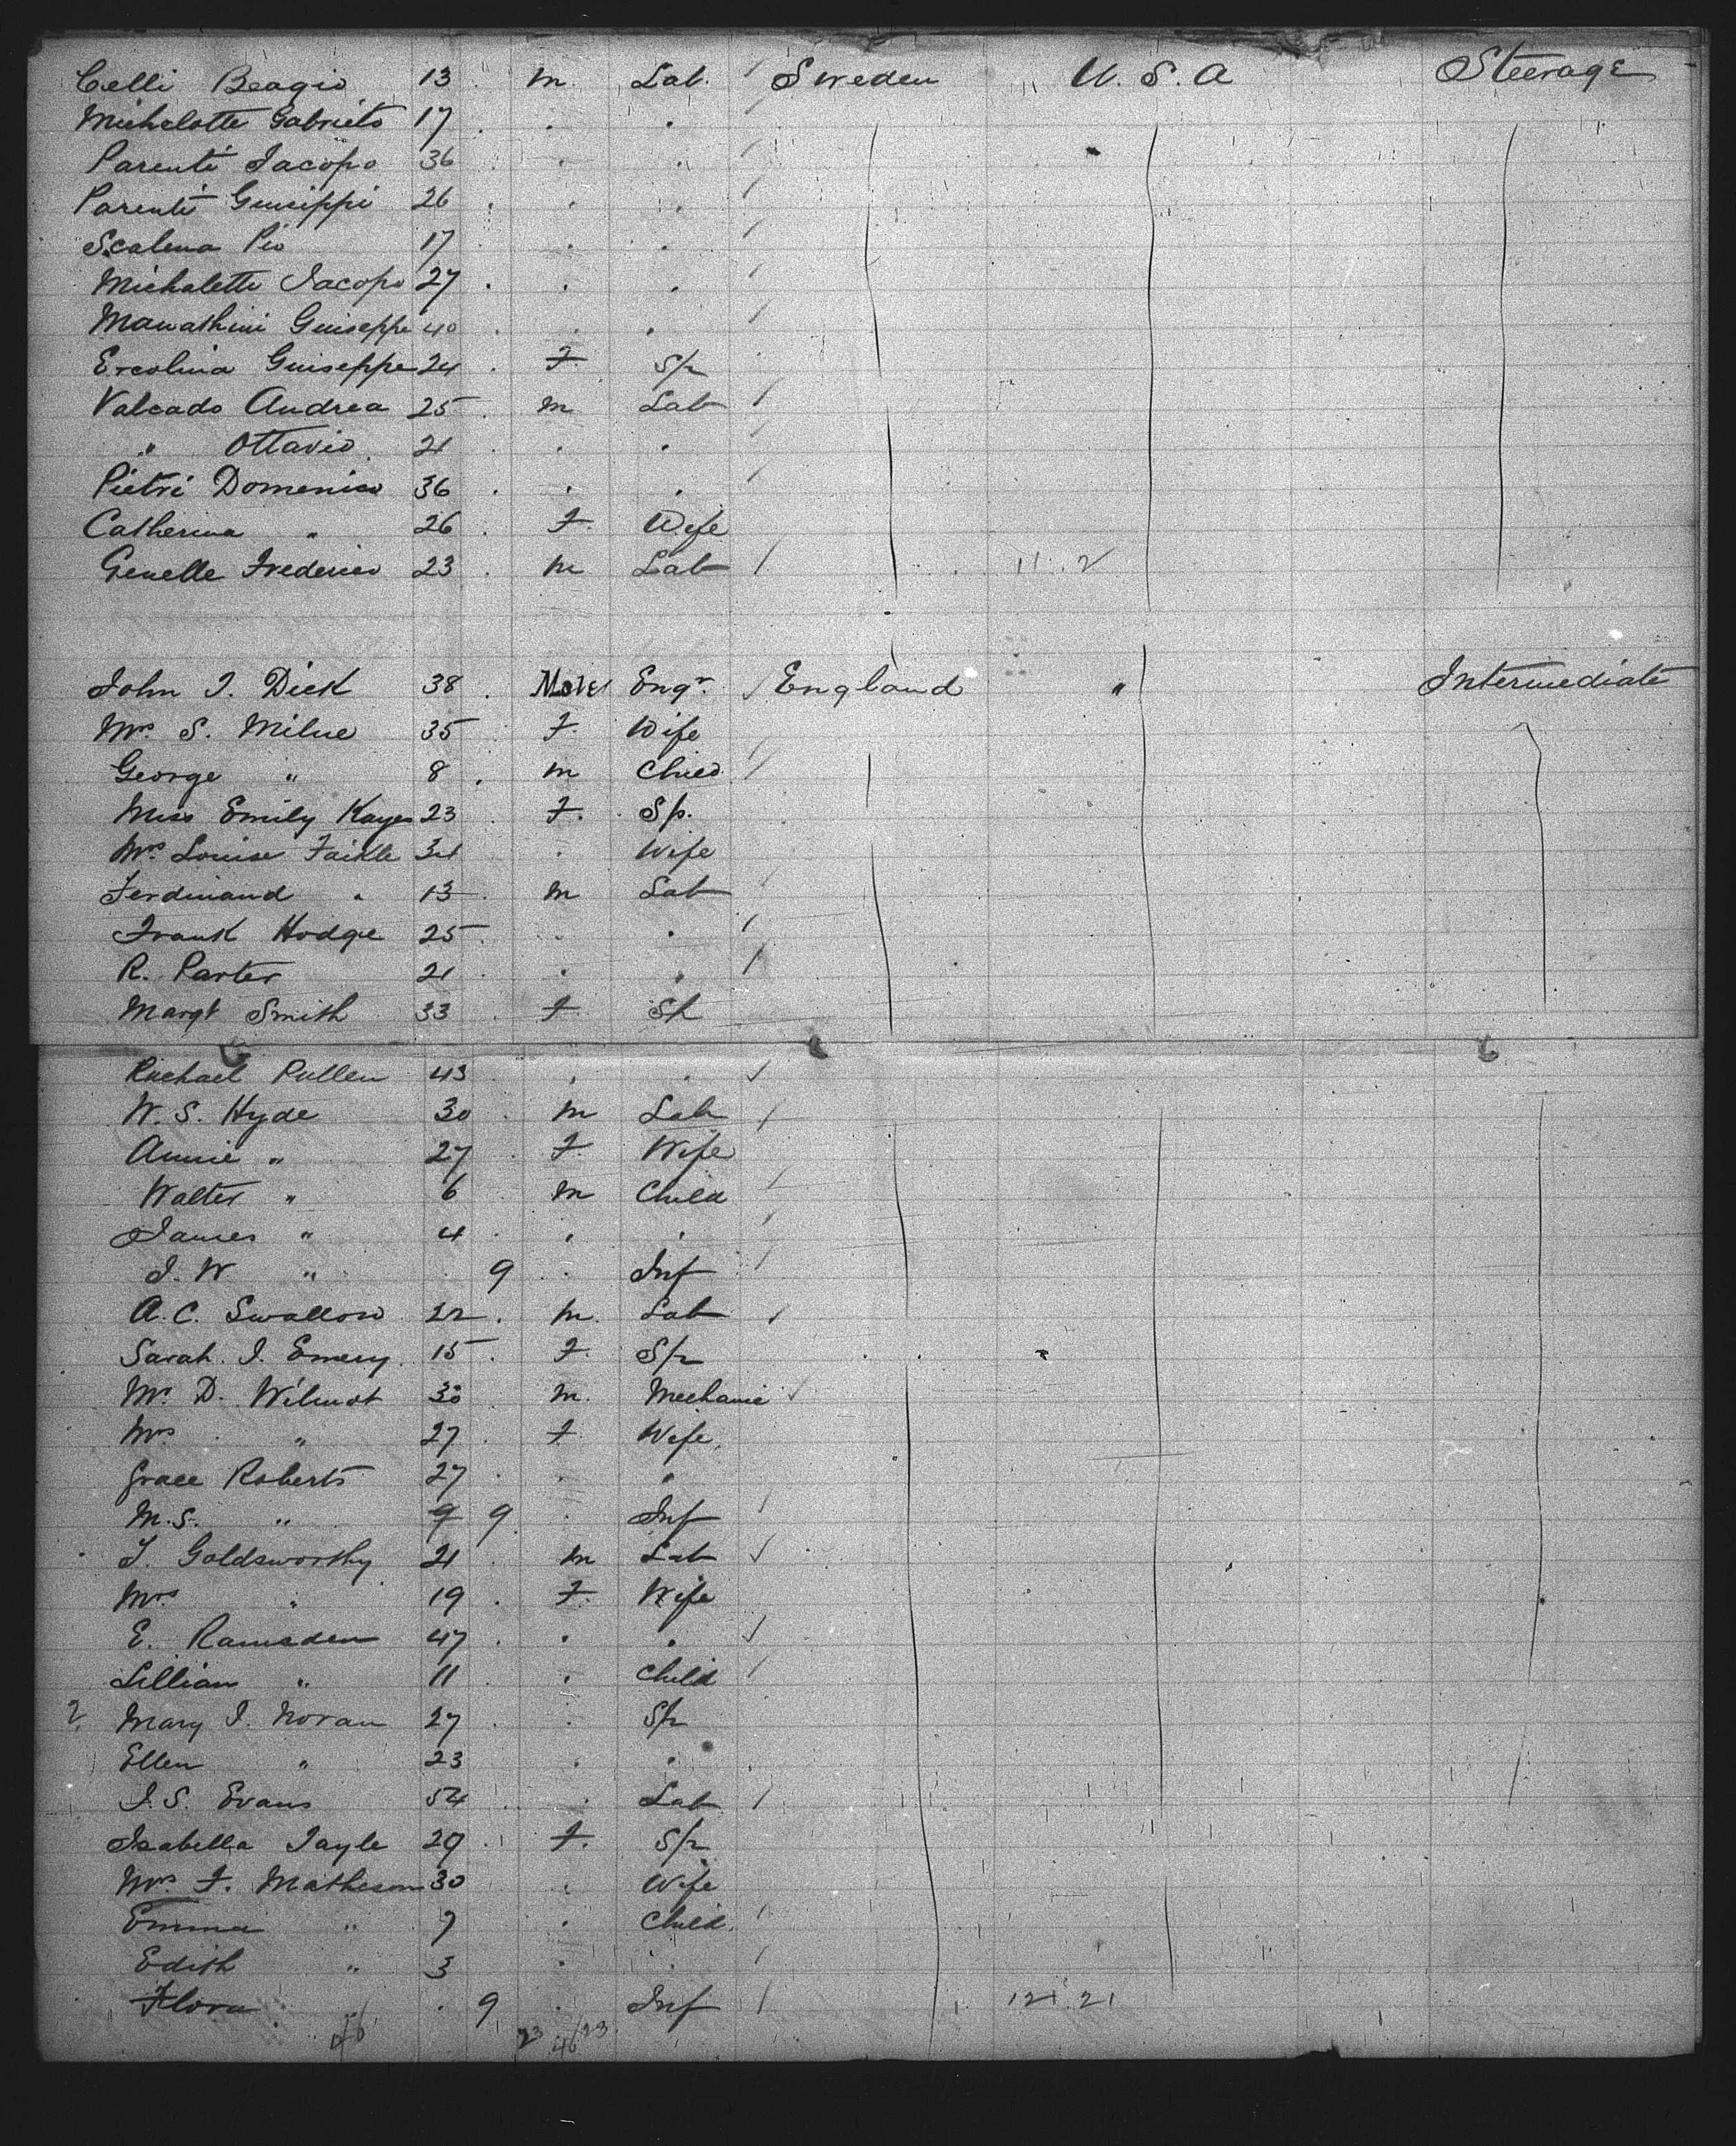 Celli Beagio 13 m. Lab. / Sweden U. S. A Steerage
Michelotte Gabrieto 17 . . . /
Parenti Jacopo 36 . . /
Parenti Guisippi 26 . . . /
Scalena Pio 17 . . . /
Michaletti Jacopo 27 . . . /
Mawathini Guiseppe 40 . . . /
Ercolina Guiseppe 24 . F. Sp
Valcado Andrea 25 . m Lab /
" Ottavio 21 . . . /
Pietri Domenico 36 . . . /
Catherina " 26 . F. Wife
Genelle Frederico 23 . m Lab / 11 . 2
John J. Dick 38 . Male Engr. / England " Intermediate
Mrs S. Milne 35 F. Wife
George " 8 . m Child /
Miss Emily Kayes 23 F. Sp.
Mrs Louise Faikle 34 . Wife
Ferdinand " 13 . m Lab /
Frank Hodge 25 . . . /
R. Parter 21 . . . /
Margt Smith 33 . F. Sp
Rachael Pullen 43 . . /
W. S. Hyde 30 . m Lab /
Annie " 27 . F. Wife
Walter " 6 . m Child /
James " 4 . . . /
J. W " . 9 . Inf /
A. C. Swallow 22 . m. Lab /
Sarah. J. Emery. 15 . F. Sp
Mr. D. Wilmot 30 m. Mechanic /
Mrs " 27 . F Wife
Grace Roberts 27 . . "
M. S. " 9 9 . Inf /
J. Goldsworthy 21 . m Lab /
Mrs " 19 . F. Wife
E. Ramsden 47 . . . /
Lillian " 11 . . Child /
2 Mary J. Noran 27 . . Sp
Ellen " 23 . "
J. S. Evans 54 . . Lab /
Isabella Tayle 29 . F. Sp
Mrs F. Matheson 30 . Wife
Emma " 7 . Child. /
Edith " 3 . . /
Flora " . 9 . Inf / 121 . 21
46 23 46/23